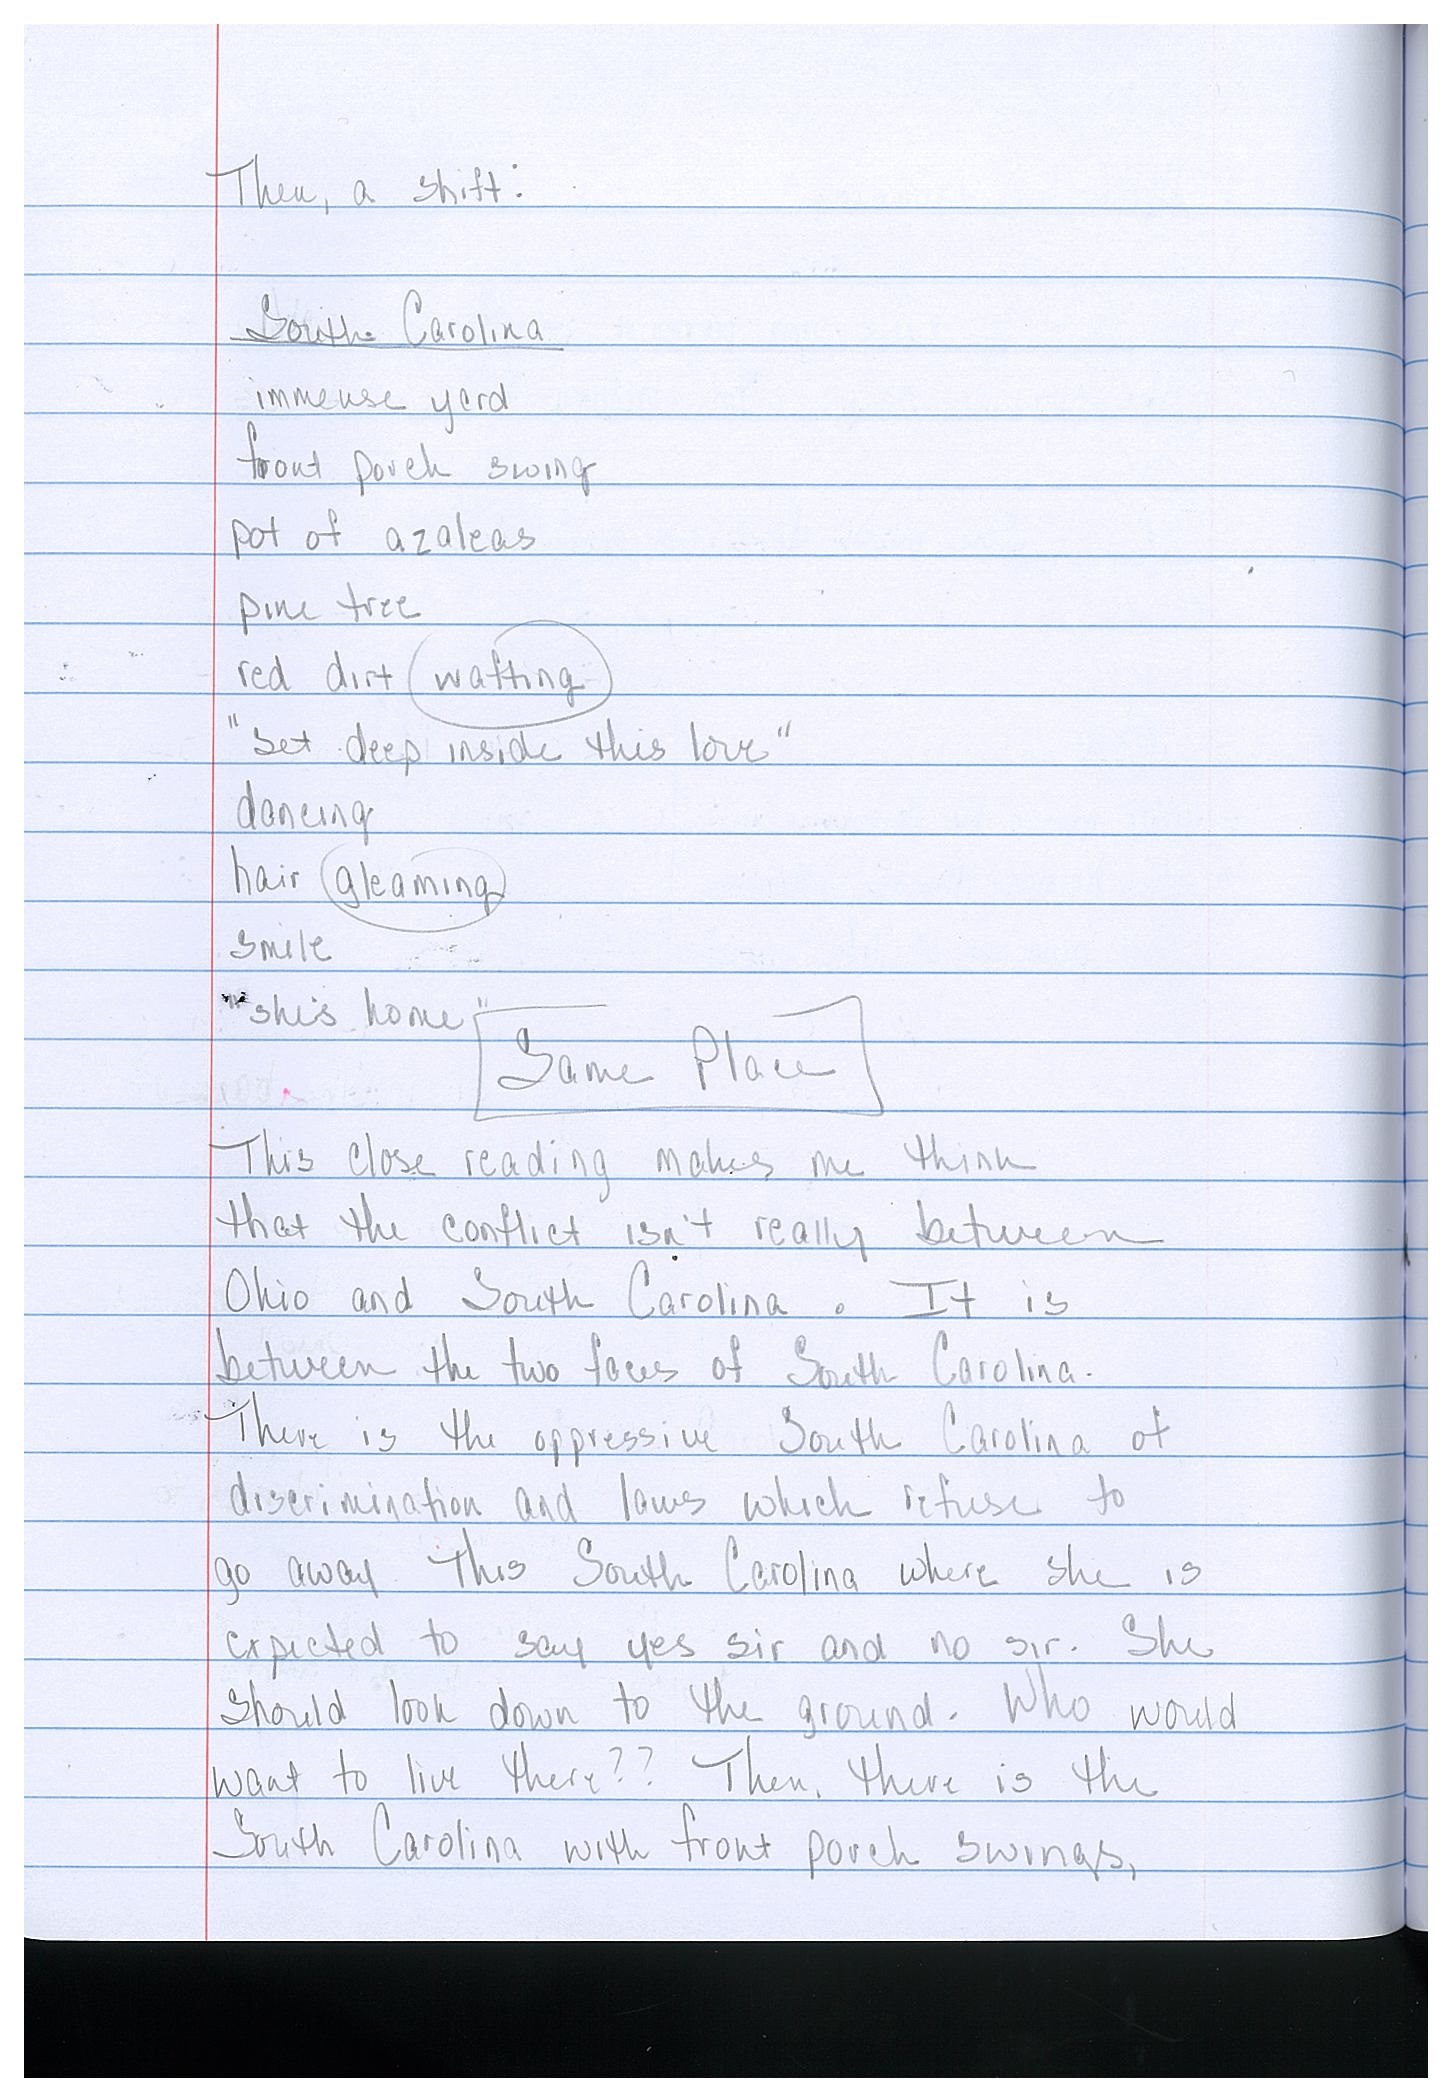 Then, a shift:
South Carolina
immense yard
front porch swing
pot of azaleas
pine tree
red dirt wafting
"set deep inside this love"
dancing
hair gleaming
smile
"she's home"
Same Place
This close reading makes me think
that the conflict isn't really between
Ohio and South Carolina. It is
between the two faces of South Carolina.
There is the oppressive South Carolina of
discrimination and laws which refuse to
go away This South Carolina where she is
expected to say yes sir and no sir. She
should look down to the ground. Who would
want to live there?? Then, there is the
South Carolina with front porch swings,